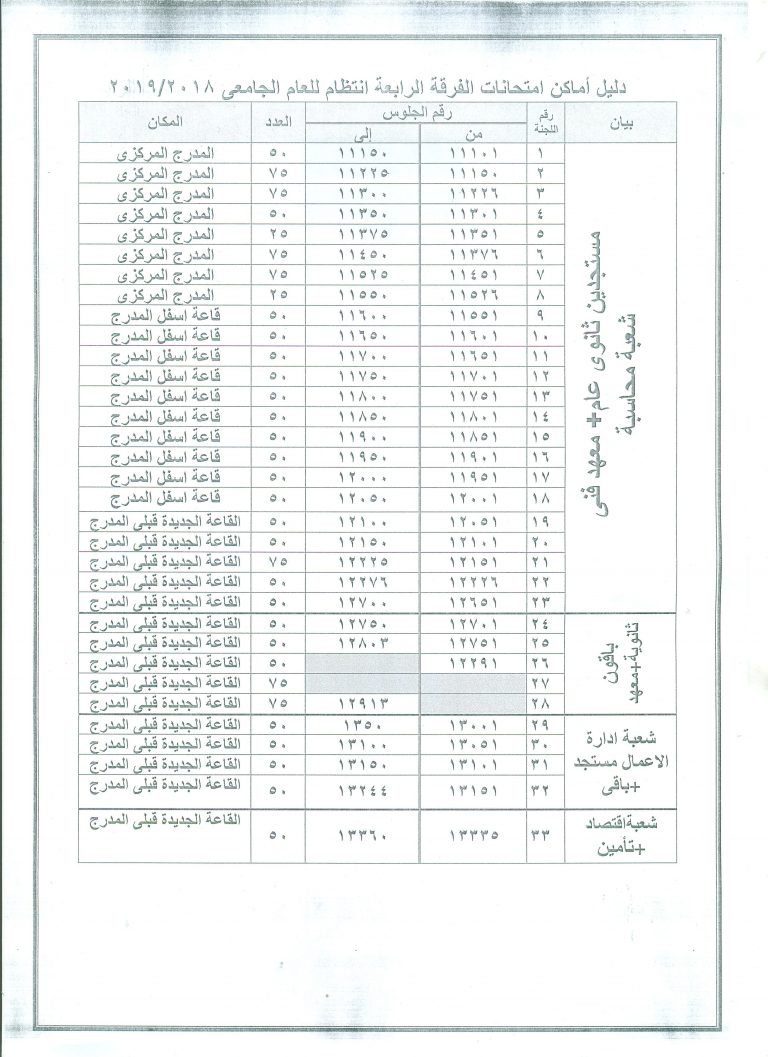 دليل أماكن امتحانات الفرقة الرابعة انتظام للعام الجامعى ٢٠١٩/٢٠١٨
بيان رقم اللجنة رقم الجلوس العدد المكان
من إلى
مستجدين ثانوى عام+ معهد فنى
شعبة محاسبة
١ ١١١٠١ ١١١٥٠ ٥٠ المدرج المركزى
٢ ١١١٥٠ ١١٢٢٥ ٧٥ المدرج المركزى
٣ ١١٢٢٦ ١١٣٠٠ ٧٥ المدرج المركزى
٤ ١١٣٠١ ١١٣٥٠ ٥٠ المدرج المركزى
٥ ١١٣٥١ ١١٣٧٥ ٢٥ المدرج المركزى
٦ ١١٣٧٦ ١١٤٥٠ ٧٥ المدرج المركزى
٧ ١١٤٥١ ١١٥٢٥ ٧٥ المدرج المركزى
٨ ١١٥٢٦ ١١٥٥٠ ٢٥ المدرج المركزى
٩ ١١٥٥١ ١١٦٠٠ ٥٠ قاعة اسفل المدرج
١٠ ١١٦٠١ ١١٦٥٠ ٥٠ قاعة اسفل المدرج
١١ ١١٦٥١ ١١٧٠٠ ٥٠ قاعة اسفل المدرج
١٢ ١١٧٠١ ١١٧٥٠ ٥٠ قاعة اسفل المدرج
١٣ ١١٧٥١ ١١٨٠٠ ٥٠ قاعة اسفل المدرج
١٤ ١١٨٠١ ١١٨٥٠ ٥٠ قاعة اسفل المدرج
١٥ ١١٨٥١ ١١٩٠٠ ٥٠ قاعة اسفل المدرج
١٦ ١١٩٠١ ١١٩٥٠ ٥٠ قاعة اسفل المدرج
١٧ ١١٩٥١ ١٢٠٠٠ ٥٠ قاعة اسفل المدرج
١٨ ١٢٠٠١ ١٢٠٥٠ ٥٠ قاعة اسفل المدرج
١٩ ١٢٠٥١ ١٢١٠٠ ٥٠ القاعة الجديدة قبلى المدرج
٢٠ ١٢١٠١ ١٢١٥٠ ٥٠ القاعة الجديدة قبلى المدرج
٢١ ١٢١٥١ ١٢٢٢٥ ٧٥ القاعة الجديدة قبلى المدرج
٢٢ ١٢٢٢٦ ١٢٢٧٦ ٥٠ القاعة الجديدة قبلى المدرج
٢٣ ١٢٦٥١ ١٢٧٠٠ ٥٠ القاعة الجديدة قبلى المدرج
باقون
ثانوية+معهد
٢٤ ١٢٧٠١ ١٢٧٥٠ ٥٠ القاعة الجديدة قبلى المدرج
٢٥ ١٢٧٥١ ١٢٨٠٣ ٥٠ القاعة الجديدة قبلى المدرج
٢٦ ١٢٢٩١ ٥٠ القاعة الجديدة قبلى المدرج
٢٧ ٧٥ القاعة الجديدة قبلى المدرج
٢٨ ١٢٩١٣ ٧٥ القاعة الجديدة قبلى المدرج
شعبة ادارة
الاعمال مستجد
+باقى
٢٩ ١٣٠٠١ ١٣٥٠ ٥٠ القاعة الجديدة قبلى المدرج
٣٠ ١٣٠٥١ ١٣١٠٠ ٥٠ القاعة الجديدة قبلى المدرج
٣١ ١٣١٠١ ١٣١٥٠ ٥٠ القاعة الجديدة قبلى المدرج
٣٢ ١٣١٥١ ١٣٢٤٤ ٥٠ القاعة الجديدة قبلى المدرج
شعبة اقتصاد
+تأمين
٣٣ ١٣٣٣٥ ١٣٣٦٠ ٥٠ القاعة الجديدة قبلى المدرج